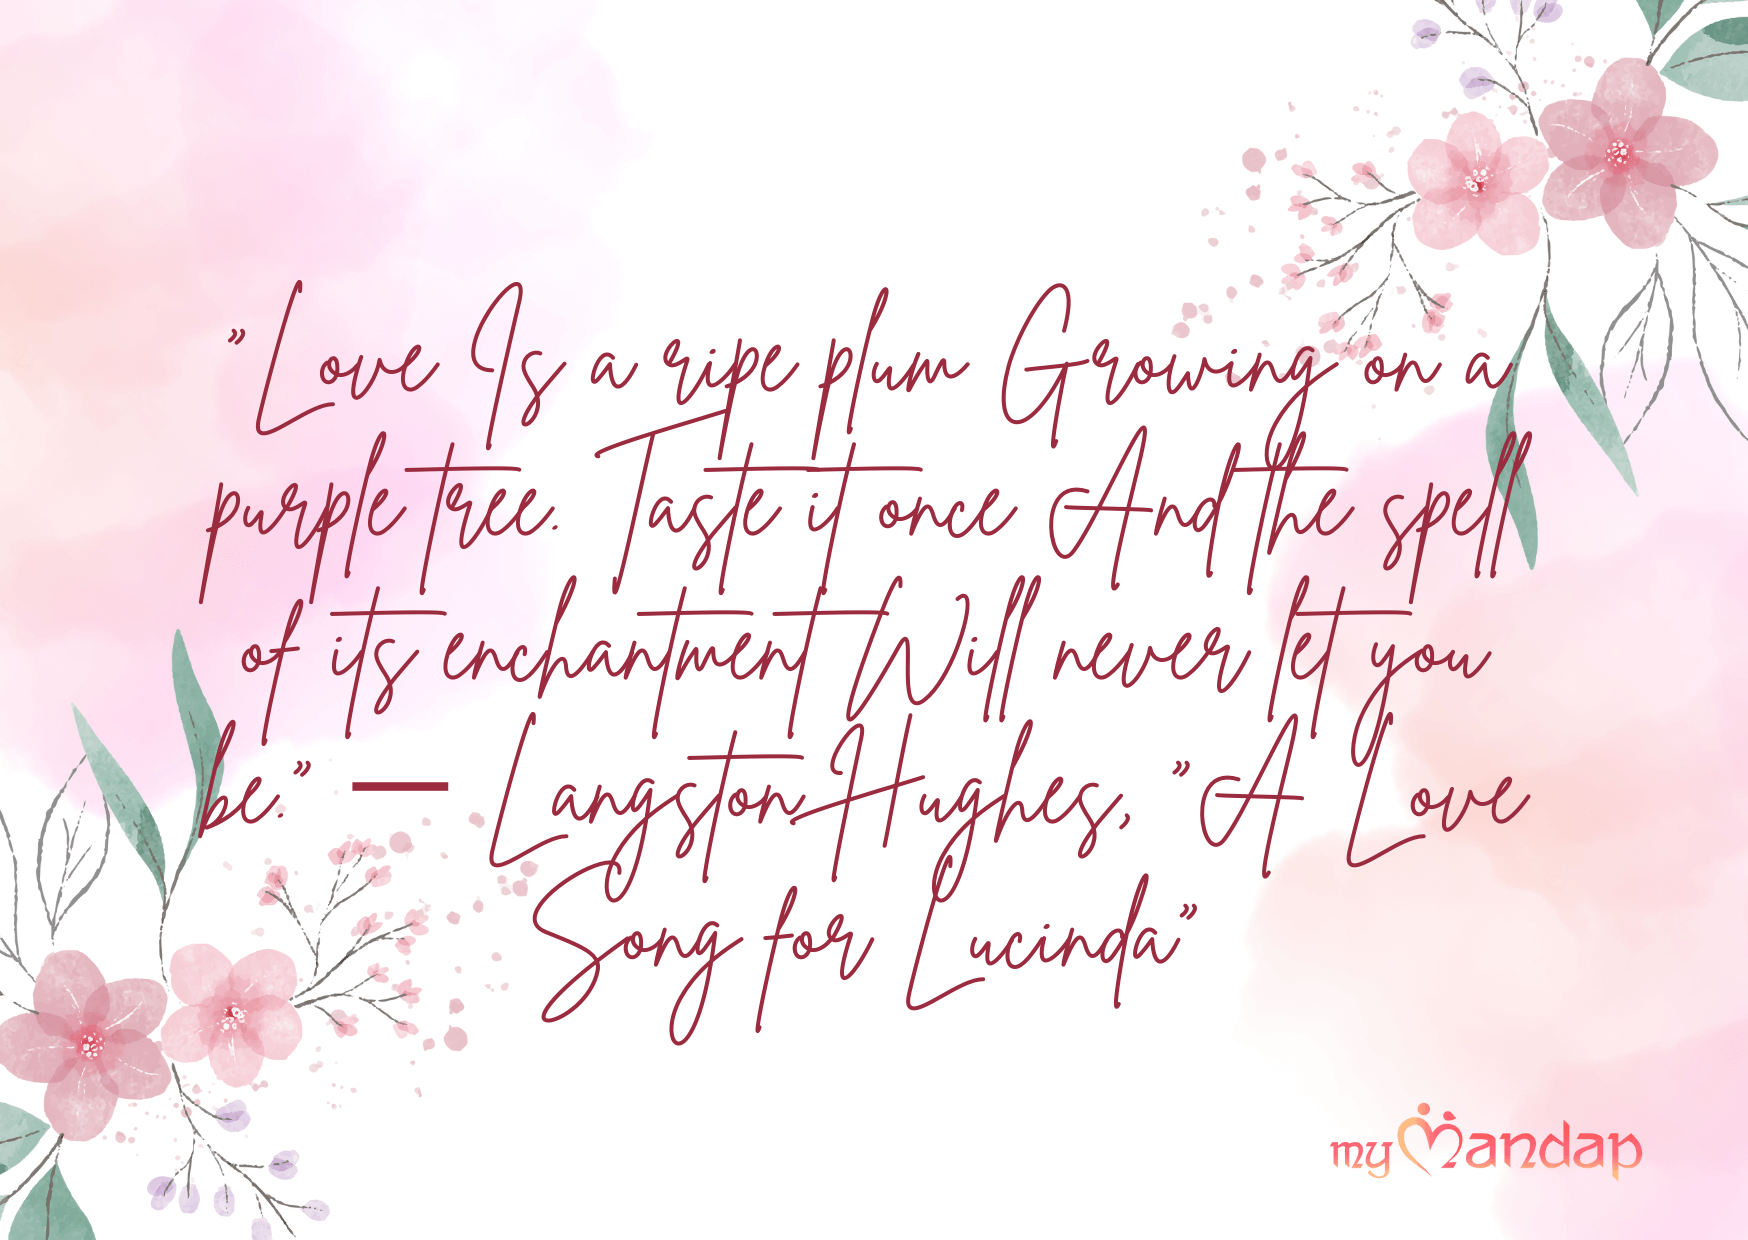 "Love Is a ripe plum Growing on a
purple tree. Taste it once And the spell
of its enchantment Will never let you
be." — Langston Hughes, "A Love
Song for Lucinda"
myMandap